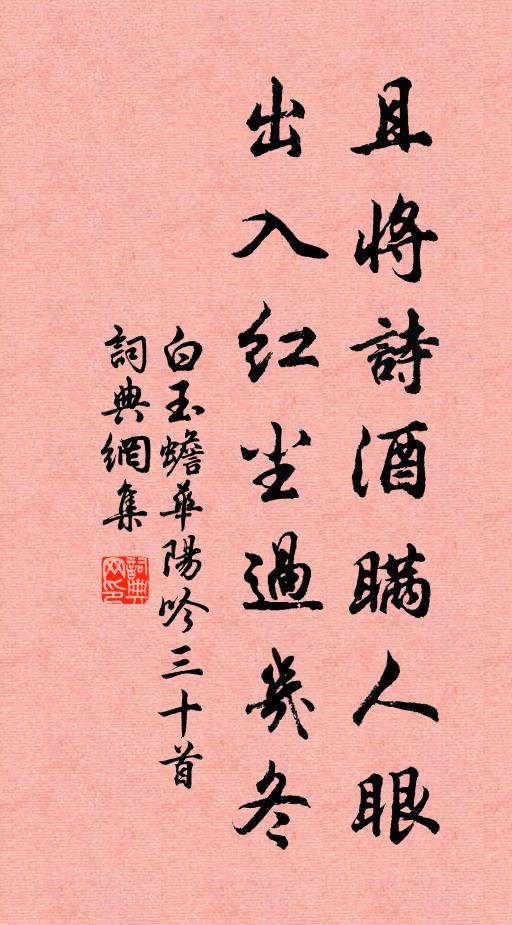 且將詩酒瞞人眼
出入紅尘過幾冬
白玉蟾華陽吟三十首
詞典網集
詞典网印